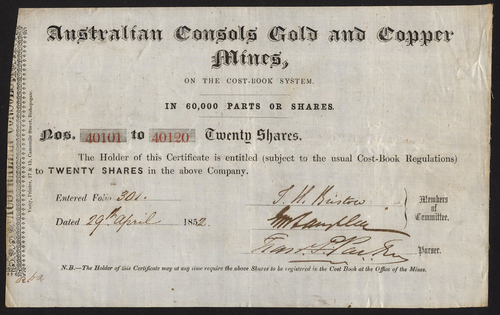 Australian Consols Gold and Copper
Mines,
ON THE COST-BOOK SYSTEM.
IN 60,000 PARTS OR SHARES.
Nos. 40101 to 40120 Twenty Shares.
The Holder of this Certificate is entitled (subject to the usual Cost-Book Regulations)
to TWENTY SHARES in the above Company.
Entered Folio 301.
Dated 29th April 1852.
Members of
Committee.
Purser.
N.B.—The Holder of this Certificate may at any time require the above Shares to be registered in the Cost Book at the Office of the Mines.